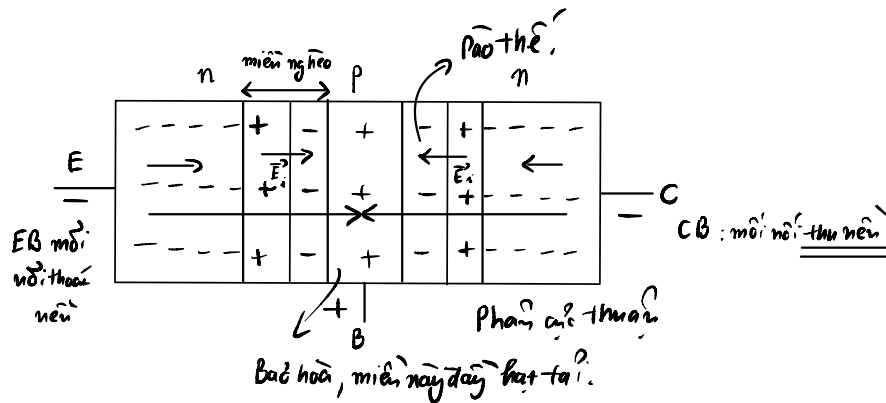 Rào thế.
miền nghèo
n
P
n
+ - + - +
E
E⃗i
E⃗i
+ - + - +
C
EB mối
nối thoát
nền
CB : mối nối thu nền
+ - + - +
+
B
Phân cực thuận
Bão hoà, miền này đầy hạt tải.